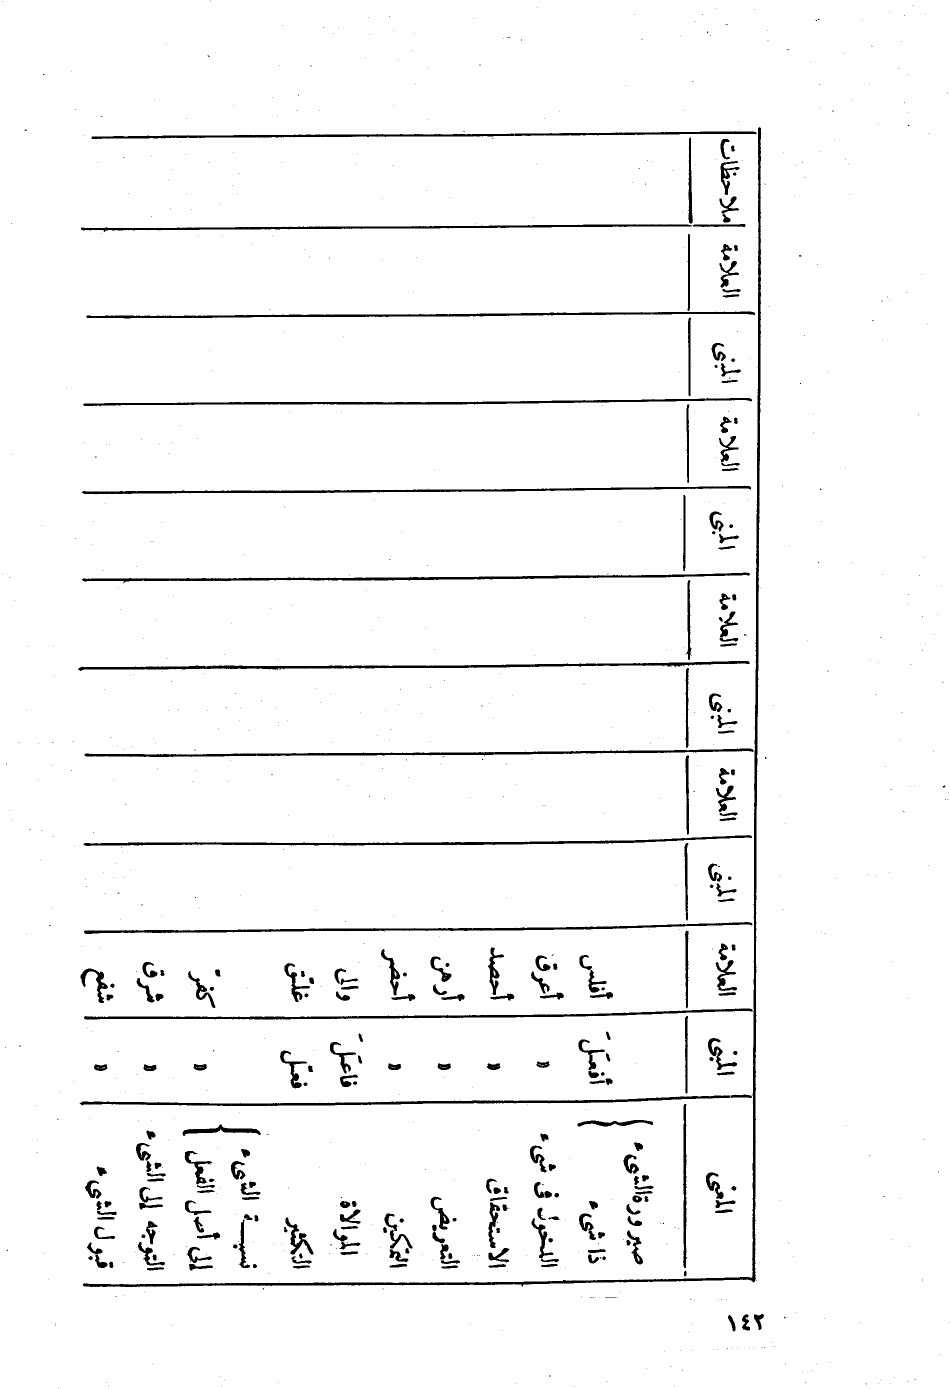 المعنى المبنى العلامة المبنى العلامة المبنى العلامة المبنى العلامة المبنى العلامة ملاحظات
صيرورة الشىء
ذا شىء أفعَلَ أفلس
الدخول فى شىء » أعرق
الاستحقاق » أحصد
التعريض » أرهن
التمكين » أحضر
الموالاة فاعَلَ والى
التكثير فعّل غلّق
نسبة الشىء
إلى أصل الفعل » كفّر
التوجه إلى الشىء » شرق
قبول الشىء » شفع
١٤٢